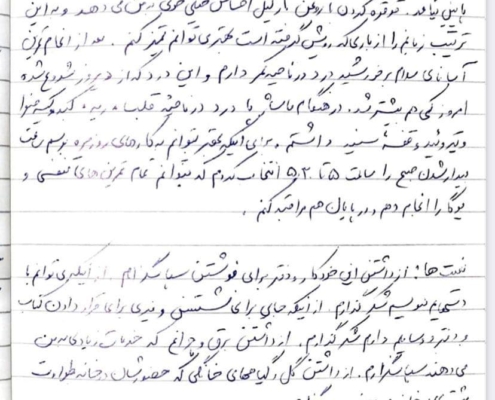 پایین بیاید. قرقره کردن با روغن نارگیل احساس خیلی خوبی به من می دهد و به این
ترتیب زبانم را از باری که رویش گرفته است بهتر می توانم تمیز کنم. بعد از انجام تمرین
آسانای سلام بر خورشید درد در ناحیه کمر دارم و این درد که از دیروز شروع شده
امروز کمی هم بیشتر شد. در هنگام ماساژ با درد در ناحیه قلب، ریه،
و تیروئید و قفسه سینه داشتم. برای اینکه بهتر بتوانم به کارهای روزمره برسم ساعت
بیدار شدن صبح را ساعت ۵ تا ۵،۲۰ انتخاب کردم که بتوانم تمام تمرین های تنفسی و
یوگا را انجام دهم و در پایان هم مراقبه کنم.
نعمت ها: از داشتن این خودکار و دفتر برای نوشتن سپاسگزارم. از اینکه می توانم با
دستهایم بنویسم شکرگذارم. از اینکه جایی برای نشستن و میزی برای قرار دادن کتاب
و دفتر و وسایلم دارم شکرگذارم. از داشتن برق و چراغ که خدمات زیادی به من
می دهند سپاسگزارم. از داشتن گل و گیاههای خانگی که حضورشان در خانه طراوت